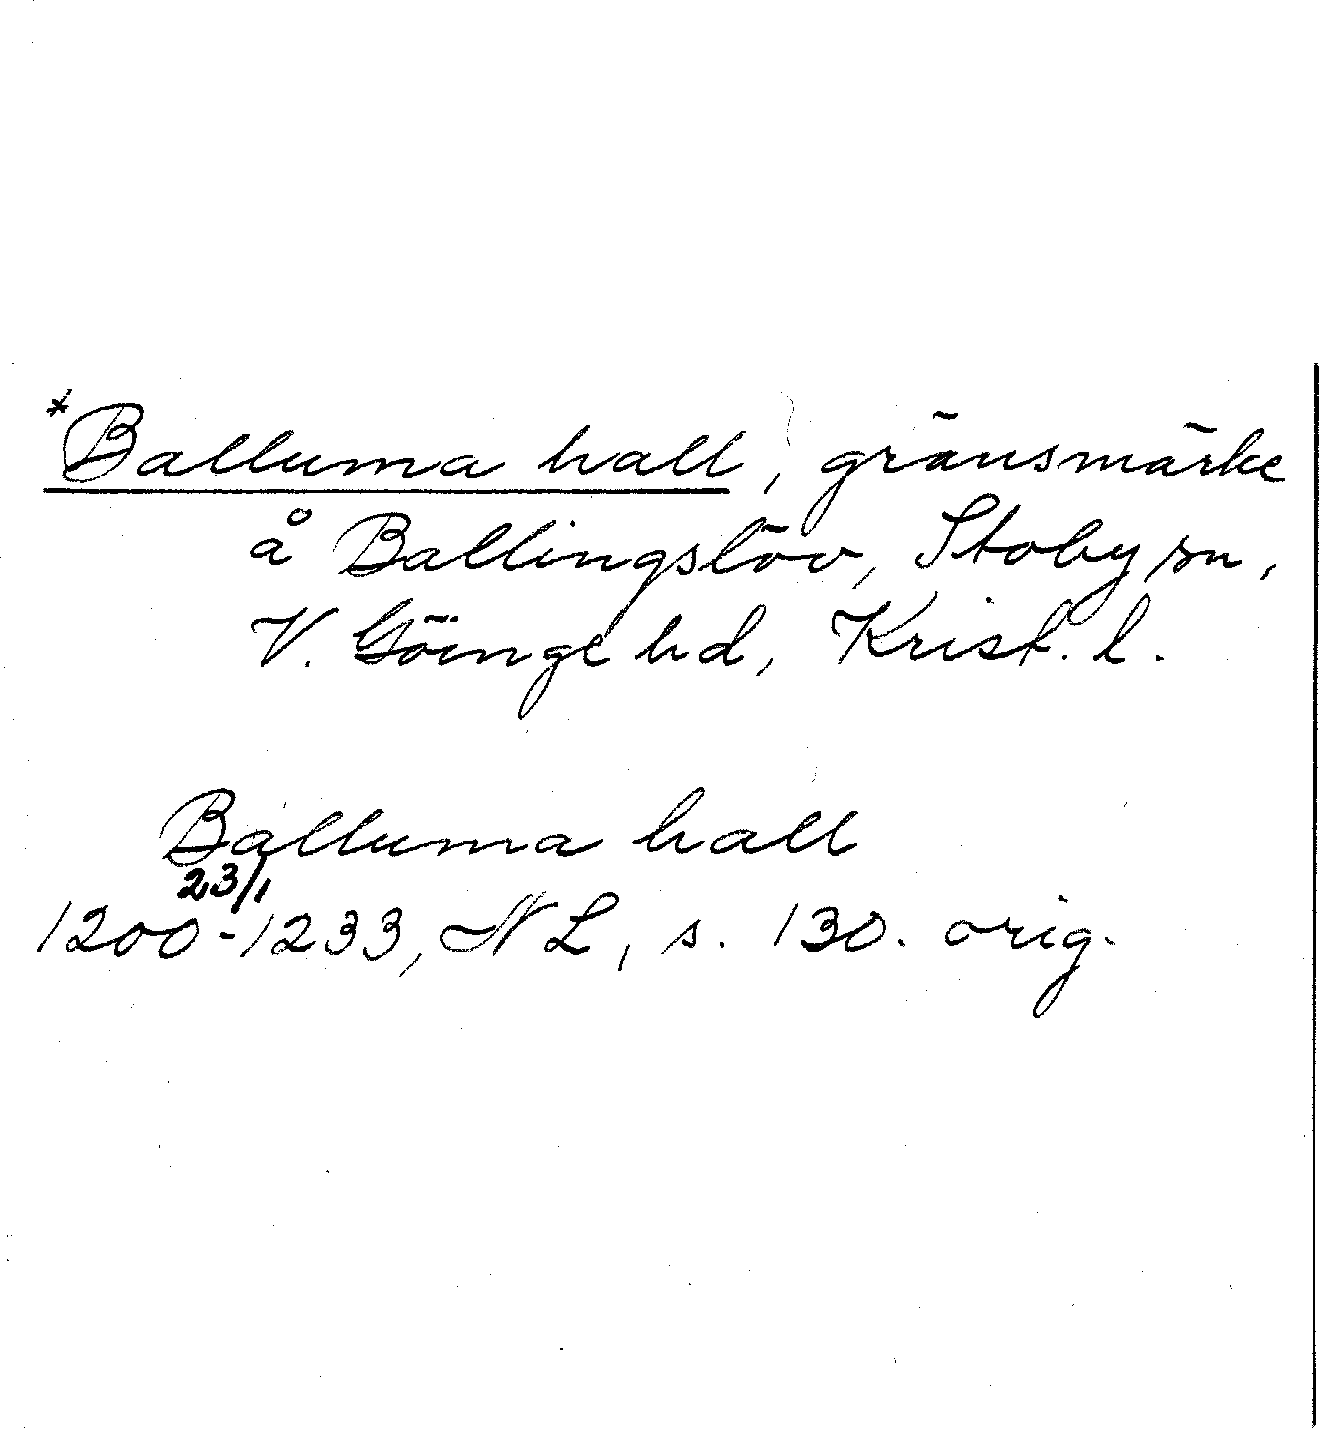 *Balluma hall, gränsmärke
å Ballingslöv, Stoby sn,
V. Göinge hd, Krist. l.
Balluma hall
23/1
1200-1233, NL, s. 130. orig.